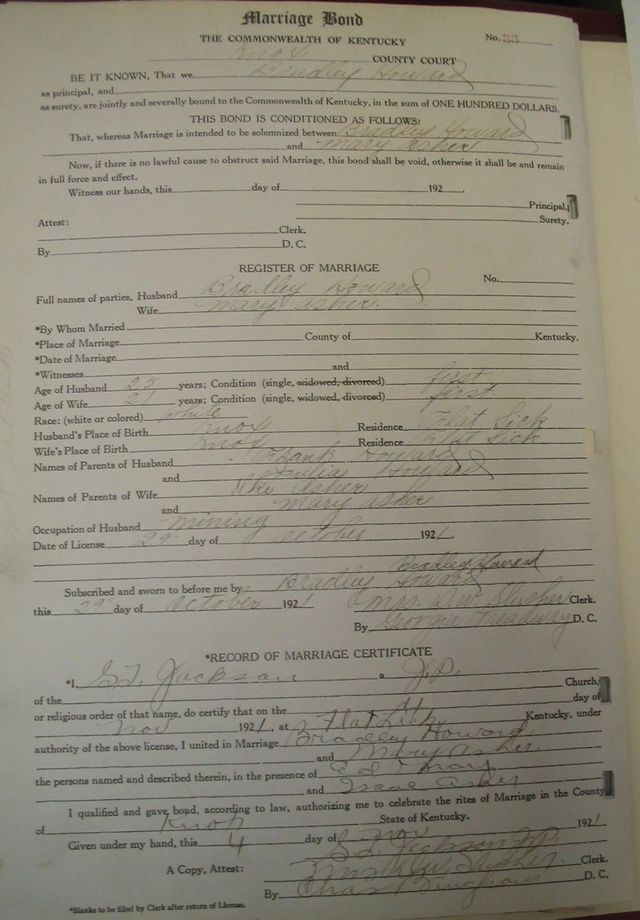 Marriage Bond
THE COMMONWEALTH OF KENTUCKY No. 33
Knox COUNTY COURT
BE IT KNOWN, That we Bradley Howard
as principal, and
as surety, are jointly and severally bound to the Commonwealth of Kentucky, in the sum of ONE HUNDRED DOLLARS.
THIS BOND IS CONDITIONED AS FOLLOWS:
That, whereas Marriage is intended to be solemnized between Bradley Howard
and Mary Asher
Now, if there is no lawful cause to obstruct said Marriage, this bond shall be void, otherwise it shall be and remain
in full force and effect.
Witness our hands, this day of 192 .
Principal.
Surety.
Attest:
Clerk.
By D. C.
REGISTER OF MARRIAGE
No.
Full names of parties, Husband Bradley Howard
Wife Mary Asher.
*By Whom Married
*Place of Marriage County of Kentucky.
*Date of Marriage
*Witnesses and
Age of Husband 25 years; Condition (single, widowed, divorced) first
Age of Wife 21 years; Condition (single, widowed, divorced) first
Race: (white or colored) White
Husband's Place of Birth Knox Residence Flat Lick
Wife's Place of Birth Knox Residence Flat Lick
Names of Parents of Husband Howard
and Julia Howard
Names of Parents of Wife Asher
and Mary Asher
Occupation of Husband Mining
Date of License 29 day of October 1921.
Bradley Howard
Subscribed and sworn to before me by Bradley Howard
this 29 day of October 1921 Mrs. Slusher Clerk.
By Georgia Treadway D. C.
*RECORD OF MARRIAGE CERTIFICATE
*I, S.L. Jackson a J.P. Church,
of the day of
or religious order of that name, do certify that on the 4
Nov 1921, at Flat Lick Kentucky, under
authority of the above license, I united in Marriage Bradley Howard
and Mary Asher.
the persons named and described therein, in the presence of Ed
and Isaac Asher
I qualified and gave bond, according to law, authorizing me to celebrate the rites of Marriage in the County
of Knox State of Kentucky.
Given under my hand, this 4 day of Nov 1921
S.L. Jackson J.P.
A Copy, Attest: Mrs. Slusher. Clerk.
By Chas Bingham D. C.
*Blanks to be filled by Clerk after return of License.